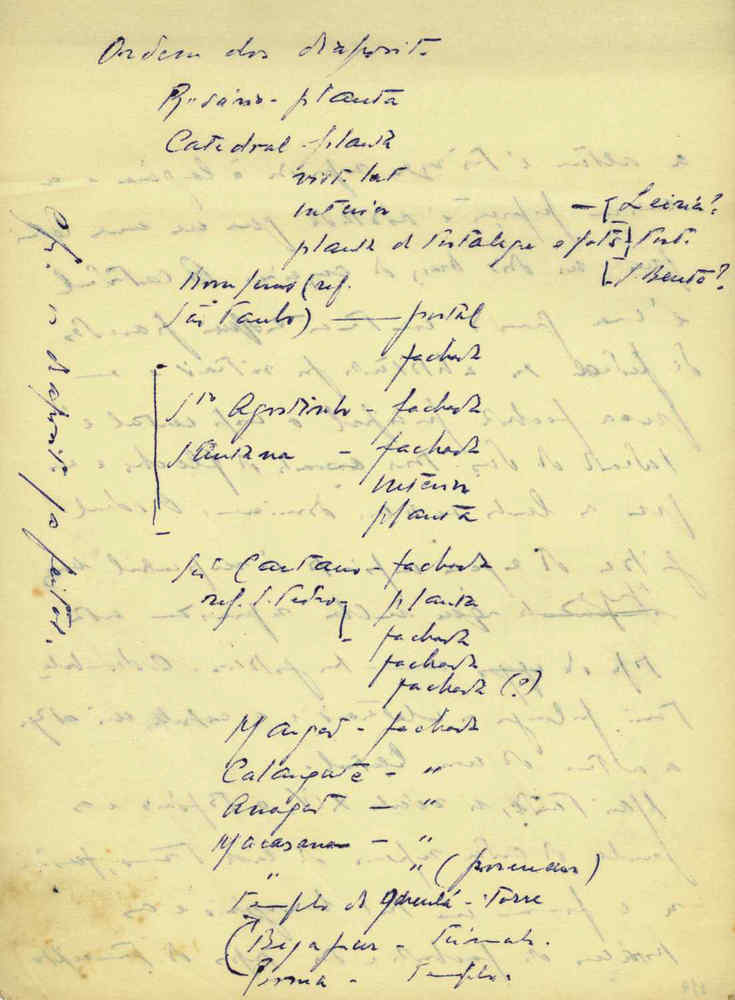 Ordem dos diaposit.
Rosário - planta
Catedral - planta
vist. lat
interior - Leiria?
planta de Portalegre e fotos Port.
S. Bento?
Bom Jesus (ref.
São Paulo) — portal
fachada
Stº Agostinho - fachada
Santana - fachada
interior
planta
São Caetano - fachada
ref. S. Pedro planta
- fachada
fachada
fachada (?)
Margão - fachada
Calangute - "
Anagod — "
Macasana - "
" " (pormenor)
Templo de - Torre
Bijapur - Túmulo.
- Templo.
Cfr. os diaposit. já feitos.